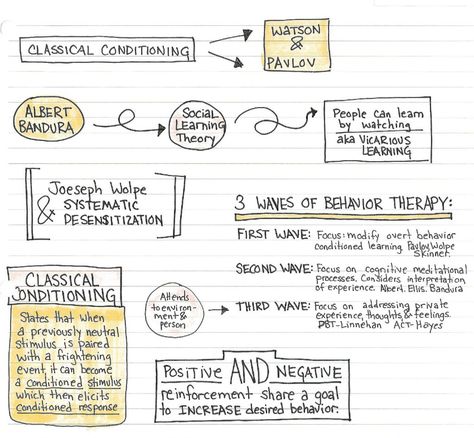 CLASSICAL CONDITIONING
WATSON
&
PAVLOV
ALBERT
BANDURA
Social
Learning
Theory
People can learn
by watching
aka VICARIOUS
LEARNING
Joeseph Wolpe
& SYSTEMATIC
DESENSITIZATION
3 WAVES OF BEHAVIOR THERAPY:
FIRST WAVE: Focus: modify overt behavior
conditioned learning. Pavlov, Wolpe
Skinner.
SECOND WAVE: Focus on cognitive meditational
processes. Considers interpretation
of experience. Albert. Ellis. Bandura
THIRD WAVE: Focus on addressing private
experience, thoughts & feelings.
DBT-Linnehan ACT-Hayes
Attends
to environ-
ment &
person
CLASSICAL
CONDITIONING
States that when
a previously neutral
stimulus is paired
with a frightening
event, it can become
a conditioned stimulus
which then elicits
conditioned response
POSITIVE AND NEGATIVE
reinforcement share a goal
to INCREASE desired behavior.